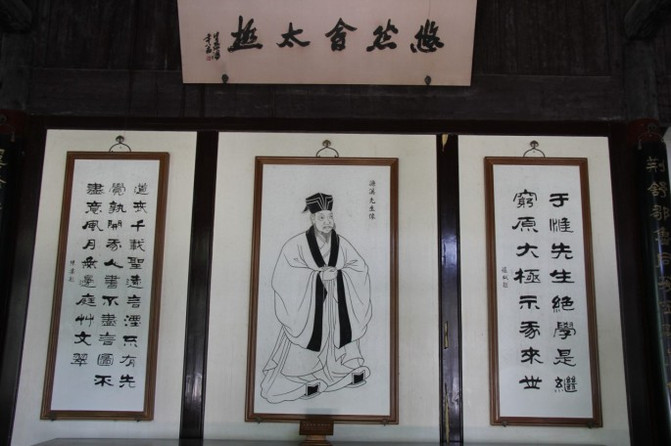 悠然會太極
于惟先生絕學是繼
窮原太極示我來世
濂溪先生像
道喪千載聖遠言湮不有先
覺孰開我人書不盡言圖不
盡意風月無邊庭艸交翠